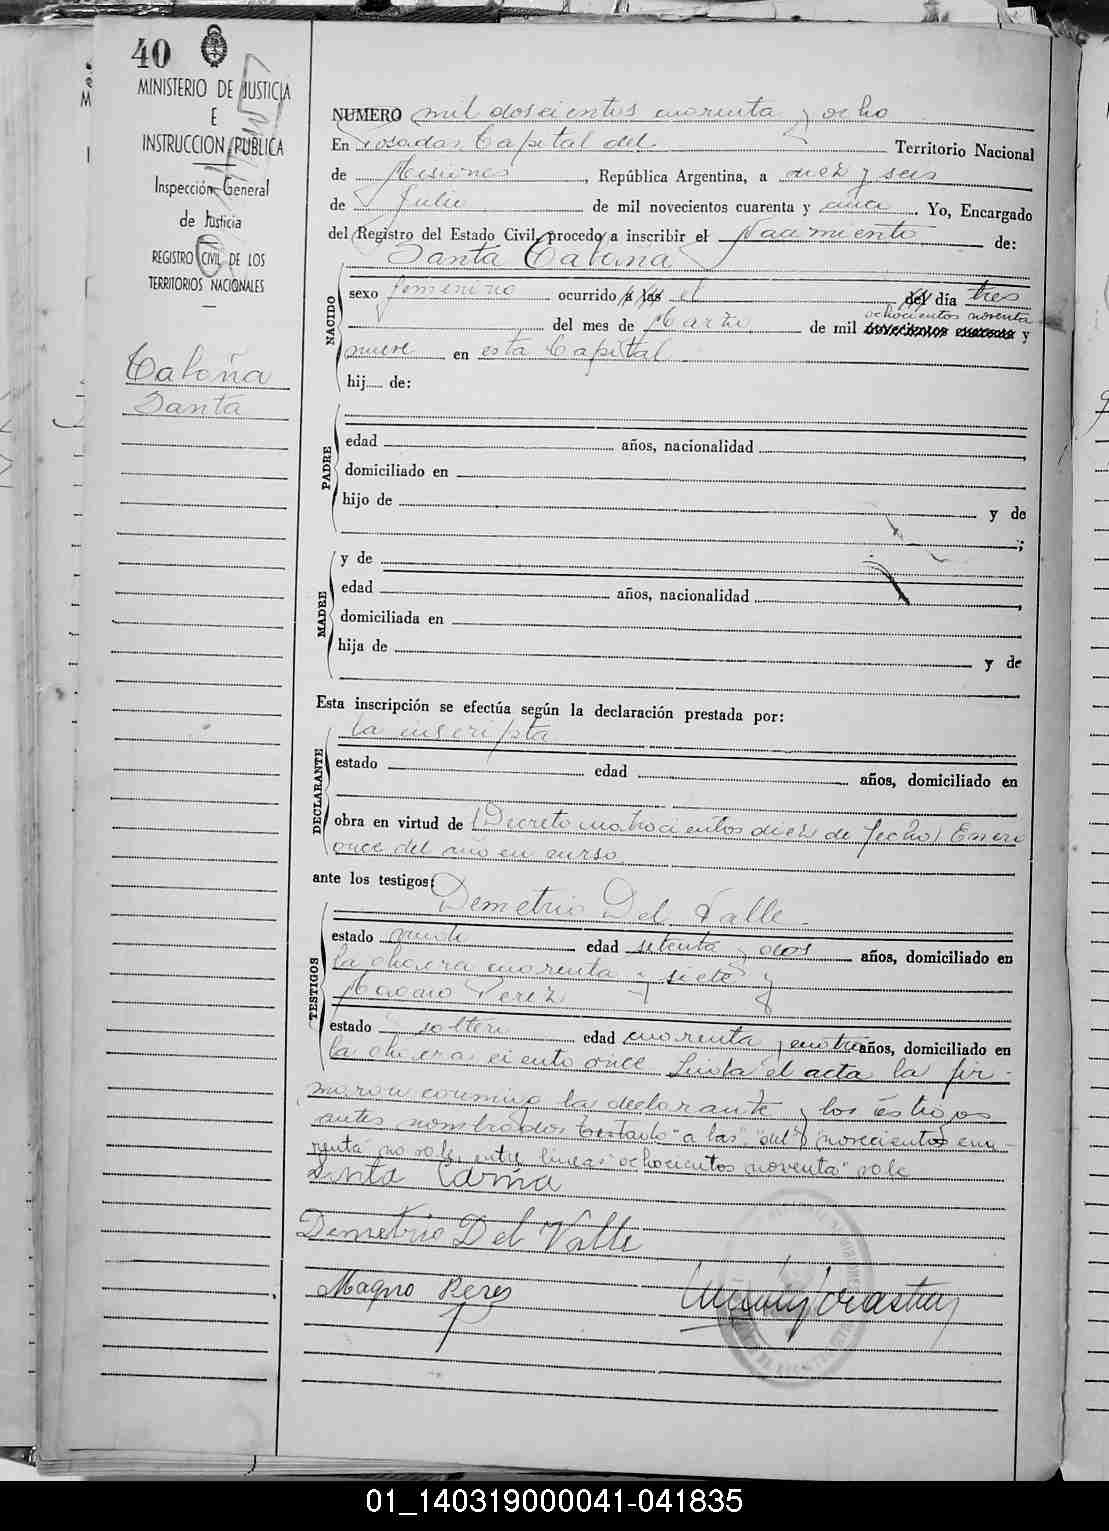 40
MINISTERIO DE JUSTICIA
E
INSTRUCCION PUBLICA
Inspección General
de Justicia
REGISTRO CIVIL DE LOS
TERRITORIOS NACIONALES
Caloña
Santa
NUMERO mil doscientos cuarenta y ocho
En Posadas Capital del Territorio Nacional
de Misiones, República Argentina, a diez y seis
de Julio de mil novecientos cuarenta y . Yo, Encargado
del Registro del Estado Civil, procedo a inscribir el Nacimiento de:
Santa Caloña
NACIDO
sexo femenino ocurrido a las el del día tres
ochocientos noventa
del mes de Marzo de mil novecientos cuarenta y
nueve en esta Capital
hij de:
PADRE
edad años, nacionalidad
domiciliado en
hijo de y de
;
MADRE
y de
edad años, nacionalidad
domiciliada en
hija de y de
Esta inscripción se efectúa según la declaración prestada por:
DECLARANTE
la inscripta
estado edad años, domiciliado en
obra en virtud de (Decreto cuatrocientos diez de fecha) Enero
once del año en curso
ante los testigos:
TESTIGOS
Demetrio Del Valle
estado edad setenta y dos años, domiciliado en
la chacra cuarenta y siete y
Magno Perez
estado soltero edad cuarenta y cuatro años, domiciliado en
la chacra ciento once Leida el acta la fir-
maron conmigo la declarante y los testigos
antes nombrados Testado "a las" "del" "novecientos cua-
renta" no vale, entre lineas "ochocientos noventa" vale
Santa
Demetrio Del Valle
Magno Perez
01_140319000041-041835